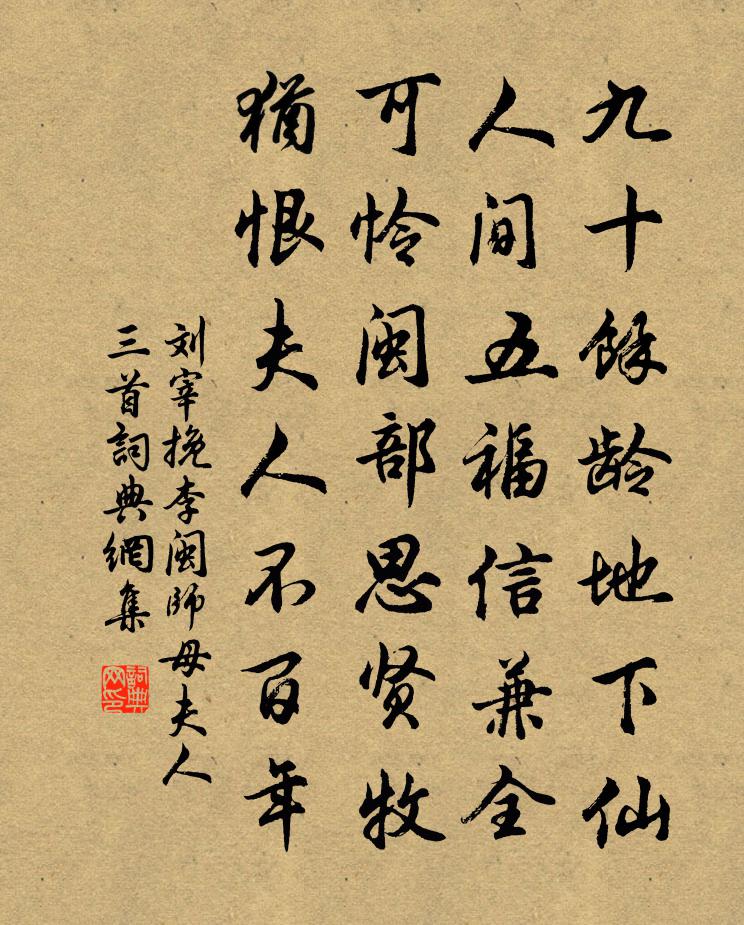 九十餘龄地下仙
人间五福信兼全
可怜闽部思贤牧
猶恨夫人不百年
刘宰挽李闽師母夫人
三首詞典網集
詞典网印